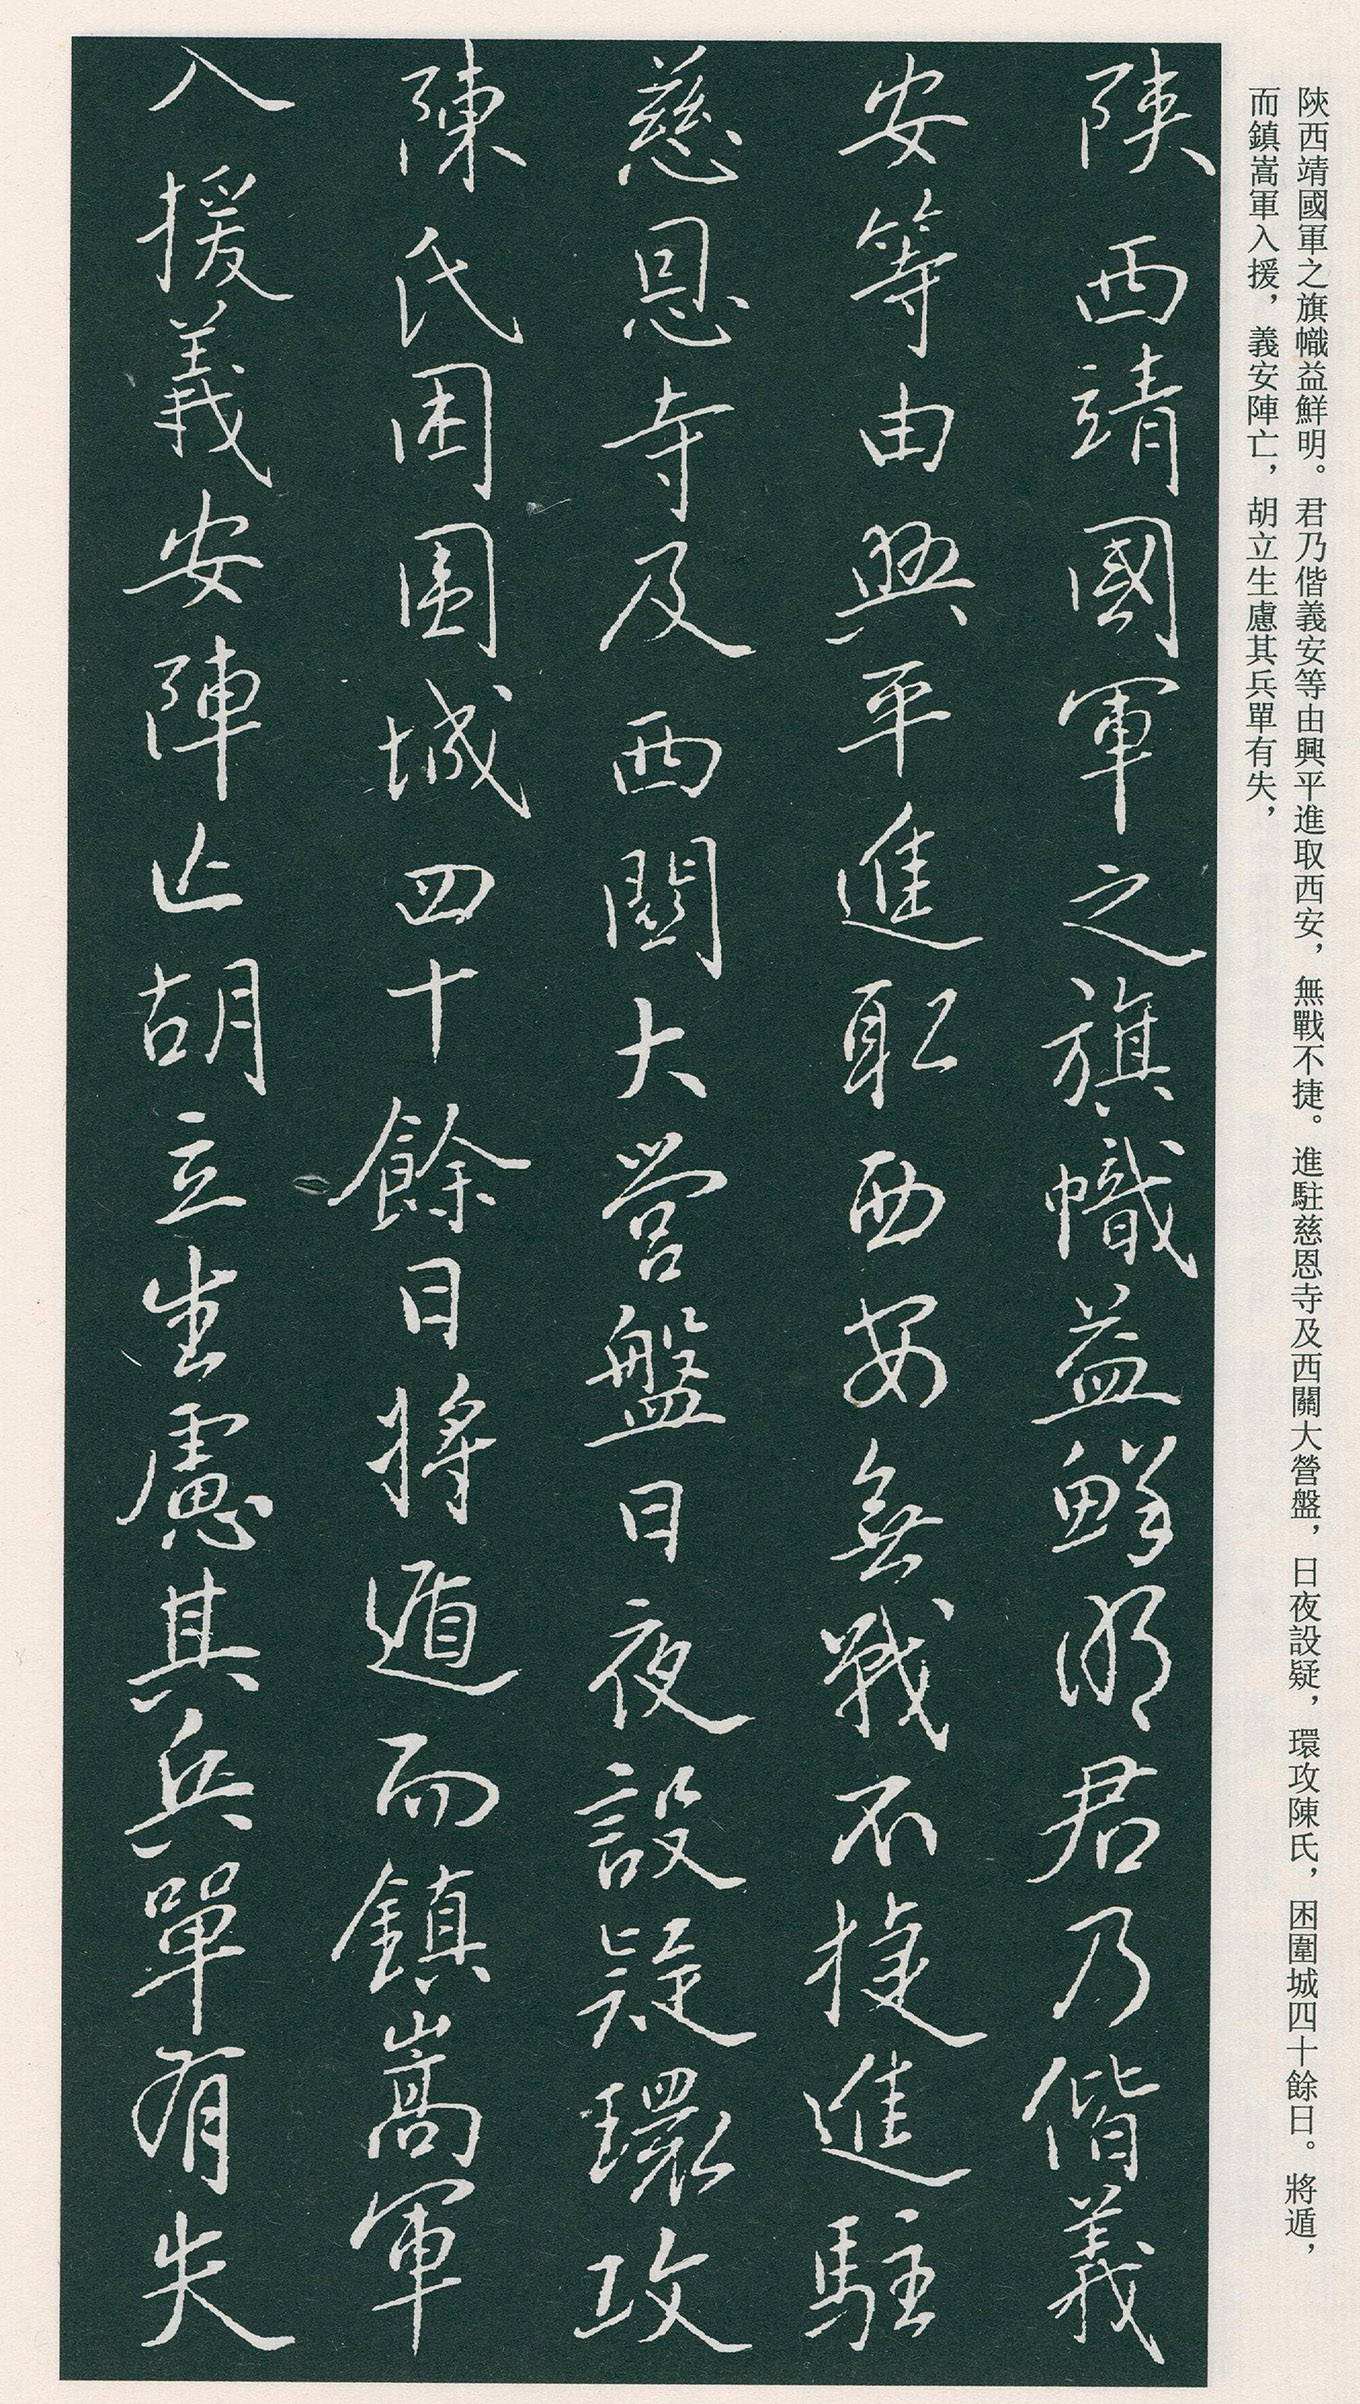 陝西靖國軍之旗幟益鮮明。君乃偕義安等由興平進取西安，無戰不捷。進駐慈恩寺及西關大營盤，日夜設疑，環攻陳氏，困圍城四十餘日。將遁，
而鎮嵩軍入援，義安陣亡，胡立生慮其兵單有失，
陝西靖國軍之旗幟益鮮明君乃偕義
安等由興平進取西安無戰不捷進駐
慈恩寺及西關大營盤日夜設疑環攻
陳氏困圍城四十餘日將遁而鎮嵩軍
入援義安陣亡胡立生慮其兵單有失